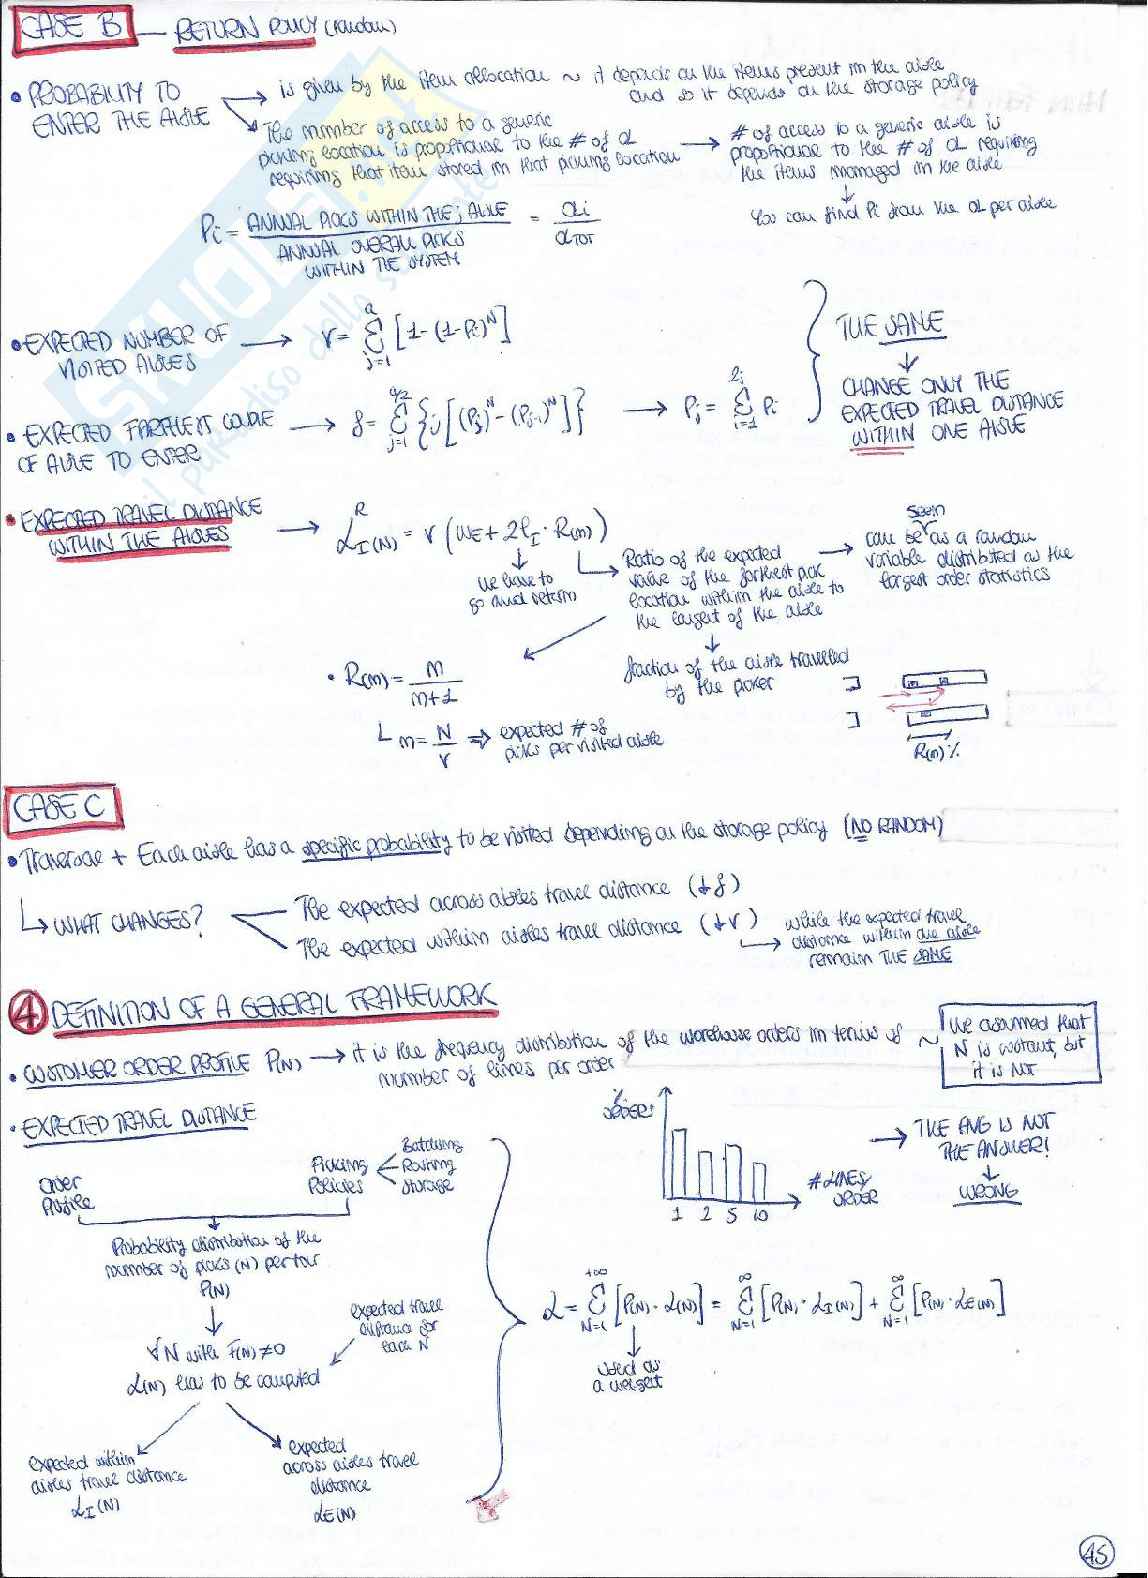 CASE B — RETURN POLICY (random)
• PROBABILITY TO ENTER THE AISLE → is given by the item allocation ~ it depends on the items present in the aisle
and so it depends on the storage policy
→ The number of access to a generic
picking location is proportional to the # of OL
requiring that item stored in that picking location
→ # of access to a generic aisle is
proportional to the # of OL requiring
the items managed in the aisle
↓
You can find Pi from the OL per aisle
Pi = ANNUAL PICKS WITHIN THE j AISLE / ANNUAL OVERALL PICKS WITHIN THE SYSTEM = αi / αTOT
• EXPECTED NUMBER OF VISITED AISLES → r = Σ_{j=1}^{a} [1-(1-Pi)^N]
• EXPECTED FARTHEST COUPLE OF AISLE TO ENTER → f = Σ_{j=1}^{a/2} {j[(Pj)^N - (Pj-1)^N]} → Pj = Σ_{i=1}^{2j} Pi
THE SAME
↓
CHANGE ONLY THE
EXPECTED TRAVEL DISTANCE
WITHIN ONE AISLE
• EXPECTED TRAVEL DISTANCE
WITHIN THE AISLES → L^R_I(N) = r (WE + 2lI · R(m))
we have to
go and return
Ratio of the expected
value of the farthest pick
location within the aisle to
the lenght of the aisle
→ can be seen as a random
variable distributed as the
largest order statistics
↓
fraction of the aisle travelled
by the picker
• R(m) = m / m+1
m = N/r ⇒ expected # of
picks per visited aisle
R(m)%
CASE C
• Traversal + Each aisle has a specific probability to be visited depending on the storage policy (NO RANDOM)
↳ WHAT CHANGES?
The expected across aisles travel distance (≠ f)
The expected within aisles travel distance (≠ r)
→ while the expected travel
distance within one aisle
remain THE SAME
4 DEFINITION OF A GENERAL FRAMEWORK
• CUSTOMER ORDER PROFILE P(N) → it is the frequency distribution of the warehouse orders in terms of
number of lines per order
~ We assumed that
N is costant, but
it is not
• EXPECTED TRAVEL DISTANCE
Order
Profile
Picking
Policies
Batching
Routing
Storage
Probability distribution of the
number of picks (N) per tour
P(N)
↓
∀N with P(N) ≠ 0
L(N) has to be computed
expected travel
distance for
each N
Expected within
aisles travel distance
LI(N)
expected
across aisles travel
distance
LE(N)
% ORDERS
1 2 5 10
# LINES/
ORDER
→ THE AVG IS NOT
THE ANSWER!
↓
WRONG
L = Σ_{N=1}^{+∞} [P(N) · L(N)] = Σ_{N=1}^{∞} [P(N) · LI(N)] + Σ_{N=1}^{∞} [P(N) · LE(N)]
↓
used as
a weight
45
SKUOLA.net
il paradiso dello studente